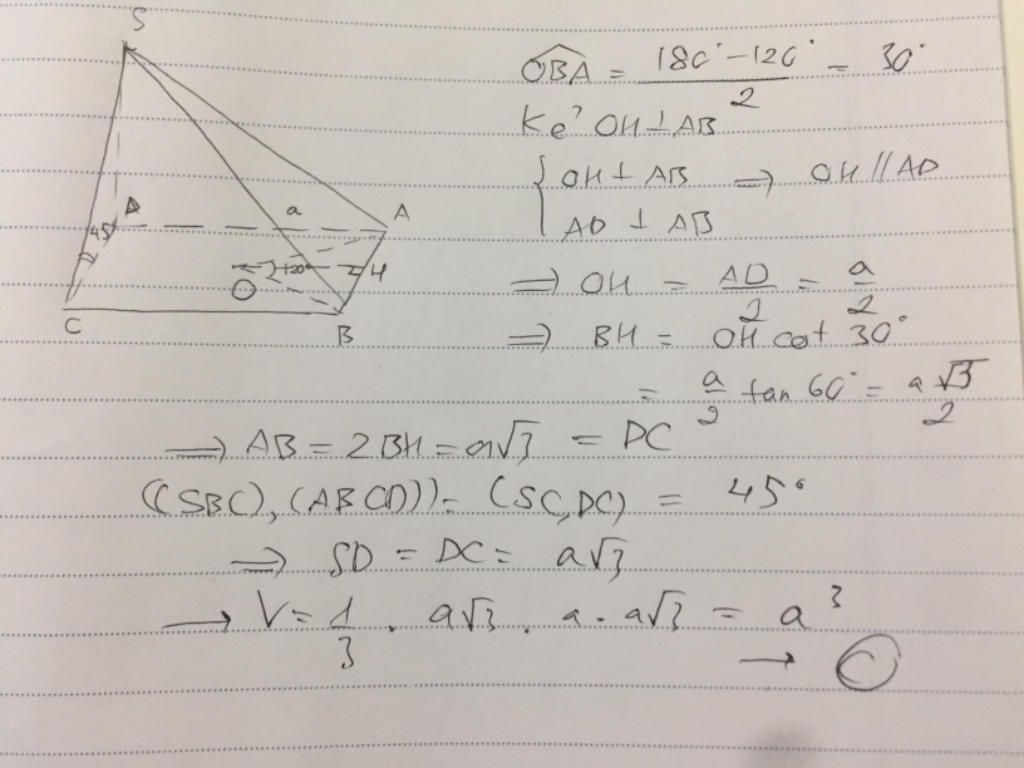 S
A
D
a
45°
120°
H
O
C
B
OBA = (180° - 120°)/2 = 30°
Kẻ OH ⊥ AB
{ OH ⊥ AB ⟹ OH // AD
AD ⊥ AB
⟹ OH = AD/2 = a/2
⟹ BH = OH cot 30°
= a/2 tan 60° = a√3/2
⟹ AB = 2BH = a√3 = DC
((SBC), (ABCD)) = (SC, DC) = 45°
⟹ SD = DC = a√3
→ V = 1/3 . a√3 . a . a√3 = a³
→ C